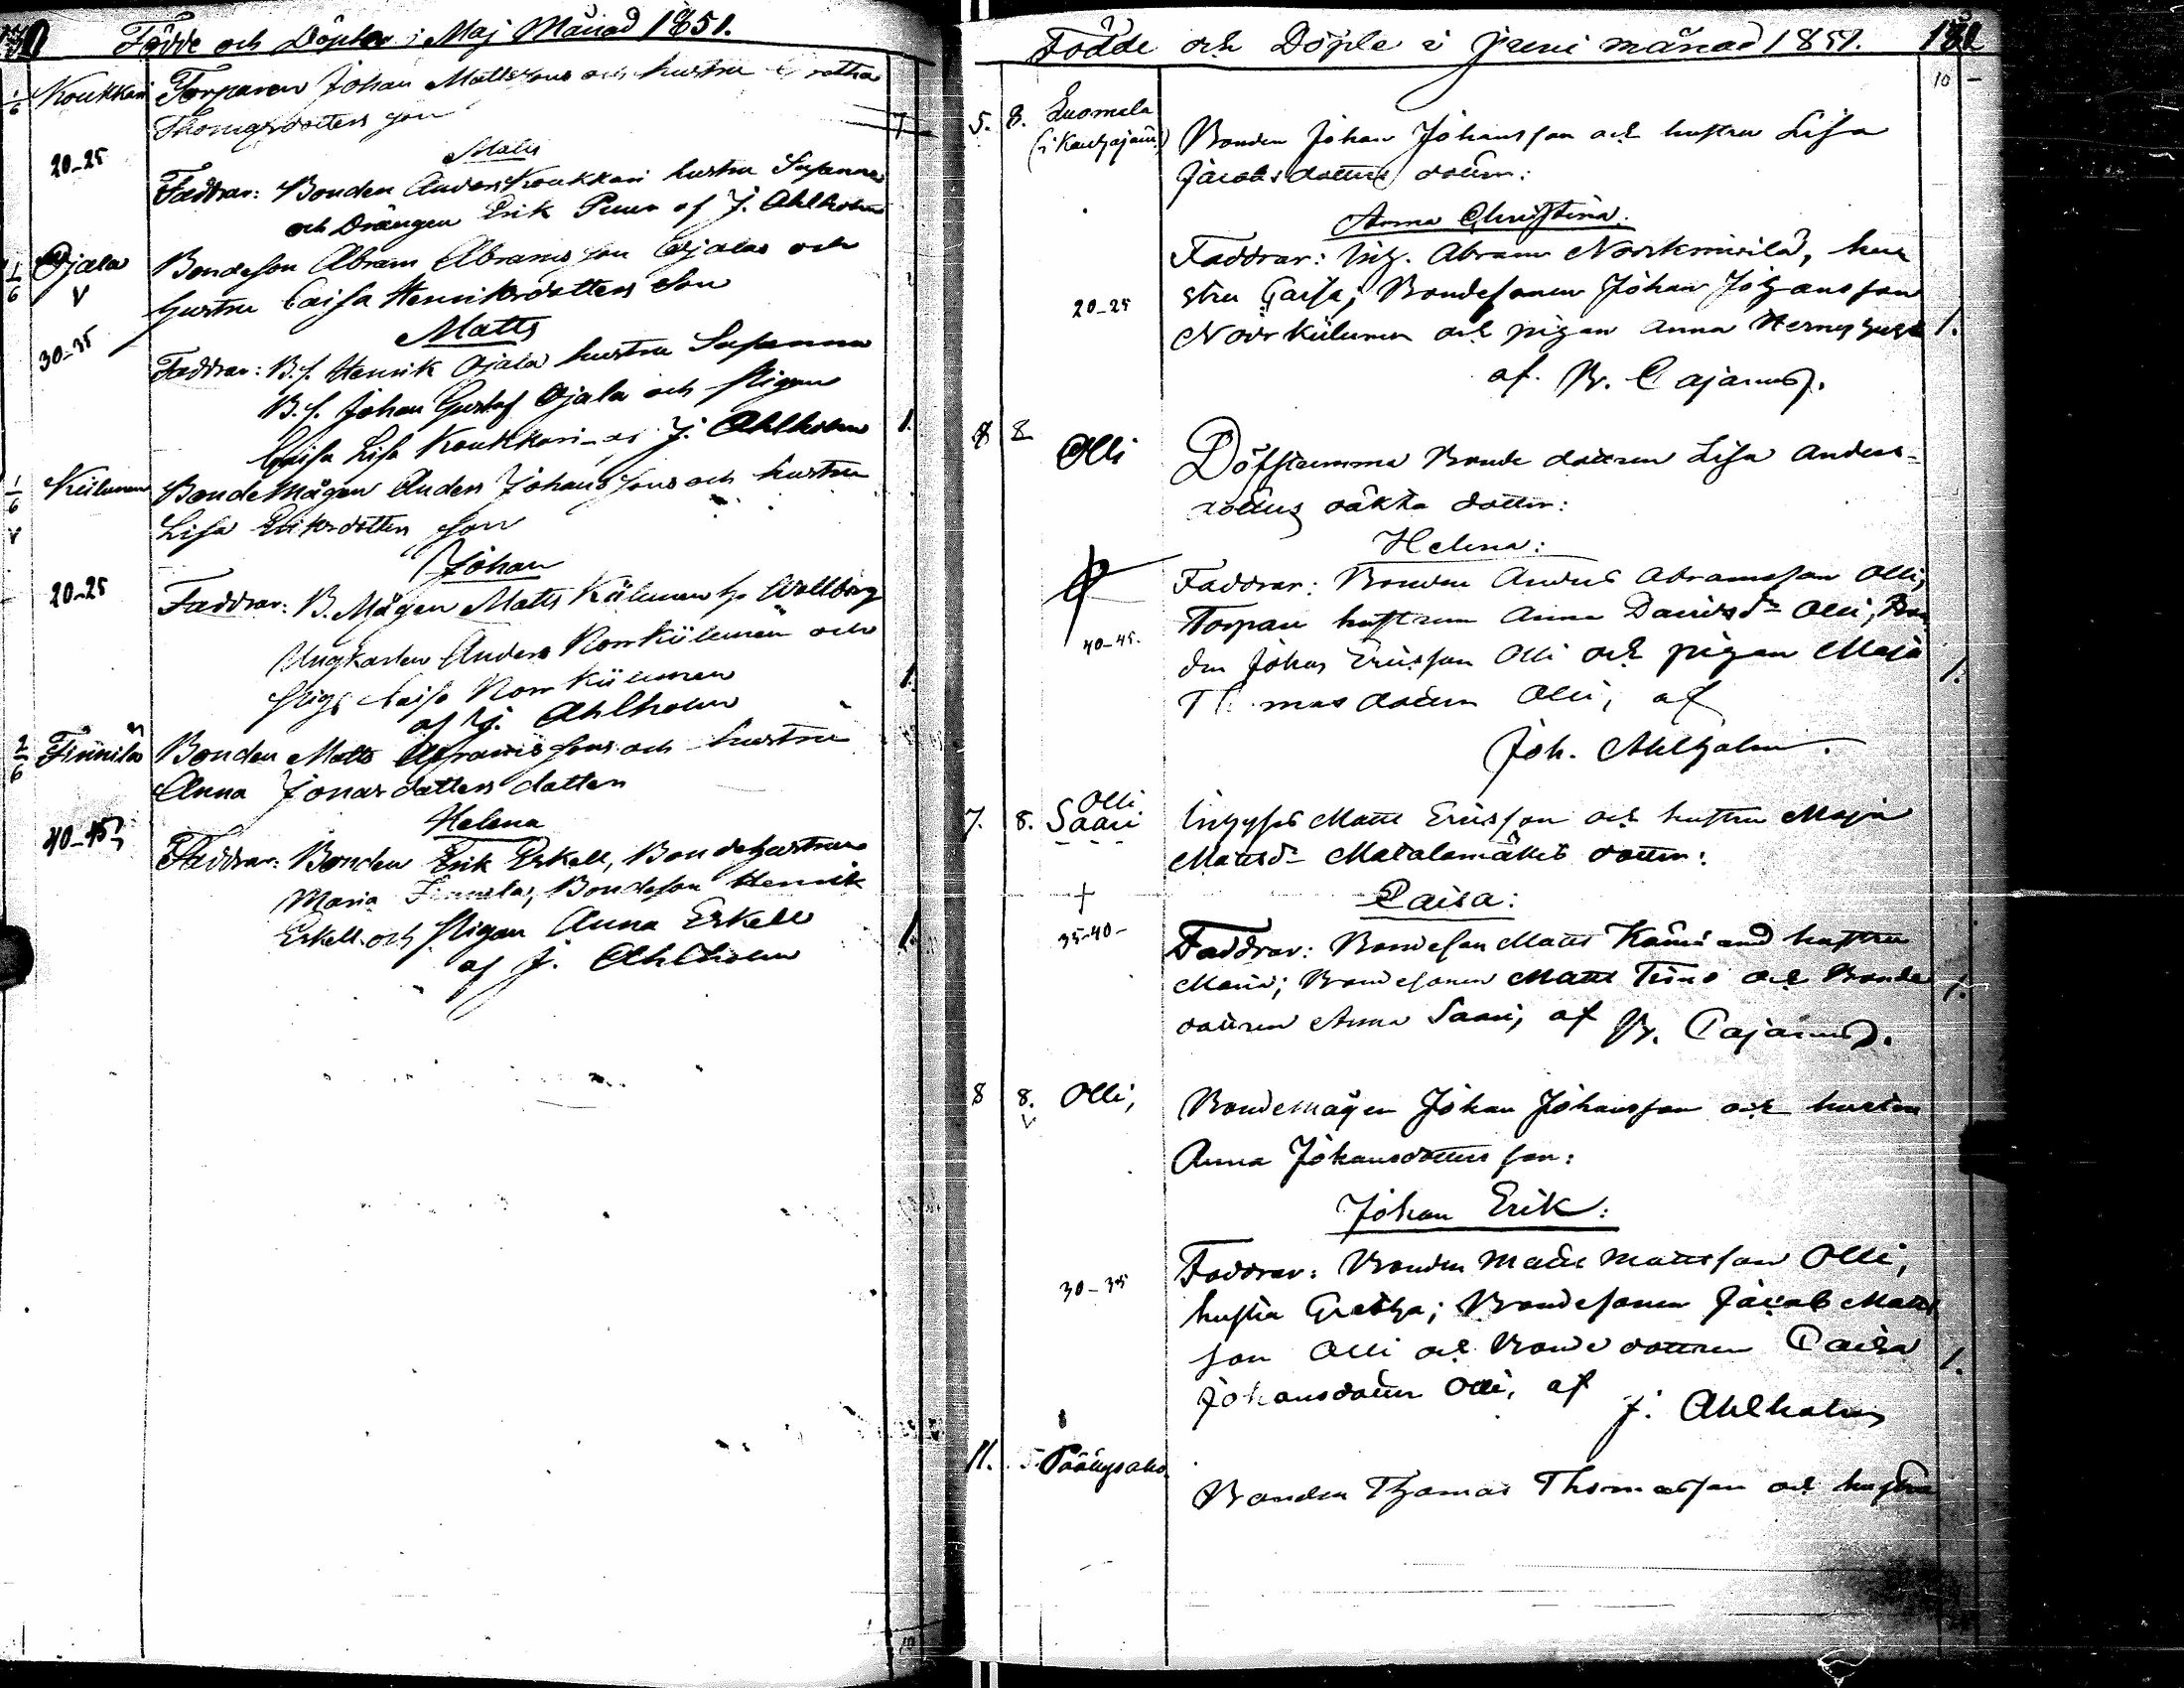 Födde och Döpte i Maj Månad 1851.
1/6 Koukkari Torparen Johan Mattssons och hustru Gretha
Thomasdotters son
Matts
20-25
Faddrar: Bonden Anders Koukkari hustru Susanna
och Drängen Erik Puur af J. Ahlholm
1/6 Ojala Bondeson Abram Abramsson Ojalas och
V
hustru Caisa Henriksdotters Son
Matts
30-35
Faddrar: B.s. Henrik Ojala hustru Susanna
B.s. Johan Gustaf Ojala och Pigan
Caisa Lisa Koukkari af J. Ahlholm 1.
1/6 Kiilunen Bondemågen Anders Johanssons och hustru
v
Lisa Eriksdotters son
Johan
20-25
Faddrar: B. Mågen Matts Kiilunen h. Wallborg
Ungkarlen Anders Norrkiilunen och
Pig. Caisa Norrkiilunen 1.
af J. Ahlholm
2/6 Finnilä Bonden Matts Abramssons och hustru
Anna Jonasdotters dotter
Helena
40-45
Faddrar: Bonden Erik Erkell, Bondehustrun
Maria Finnilä, Bondeson Henrik
Erkell och Pigan Anna Erkell 1.
af J. Ahlholm
Födde och Döpte i Juni månad 1851. 181
10 -
5. 8. Luomala
Bonden Johan Johansson och hustru Lisa
Jacobsdotters dotter:
Anna Christina.
Faddrar: Abram hu
20-25
stru Caisa; Bondesonen Johan Johansson
Norrkiilunen och pigan Anna 1.
af. Cajanus.
8 8 Olli Döfstumma Bonde dottren Lisa Anders-
dotters oäkta dotter:
Helena:
Faddrar: Bonden Anders Abramsson Olli,
40-45.
Torpare hustrun Anna Danielsdr Olli, Bon
den Johan Ericsson Olli och pigan Maja 1.
Thomasdotter Olli, af
Joh. Ahlholm.
7. 8. Olli
Saari Matts Ericsson och hustru Maja
Mattsdr Matalamäkis dotter:
+
Caisa:
35-40-
Faddrar: Bondeson Matts hustru
Maria; Bondesonen Matts och Bonde 1.
dottren Anna Saari, af Cajanus.
8 8. Olli,
v
Bondemågen Johan Johansson och hustru
Anna Johansdotters son:
Johan Erik:
Faddrar: Bonden Matts Mattsson Olli,
30-35
hustru Gretha; Bondesonen Jacob Matts
son Olli och Bonde dottren Caisa 1.
Johansdotter Olli, af
J. Ahlholm
11.
Bonden Thomas Thomasson och hustru